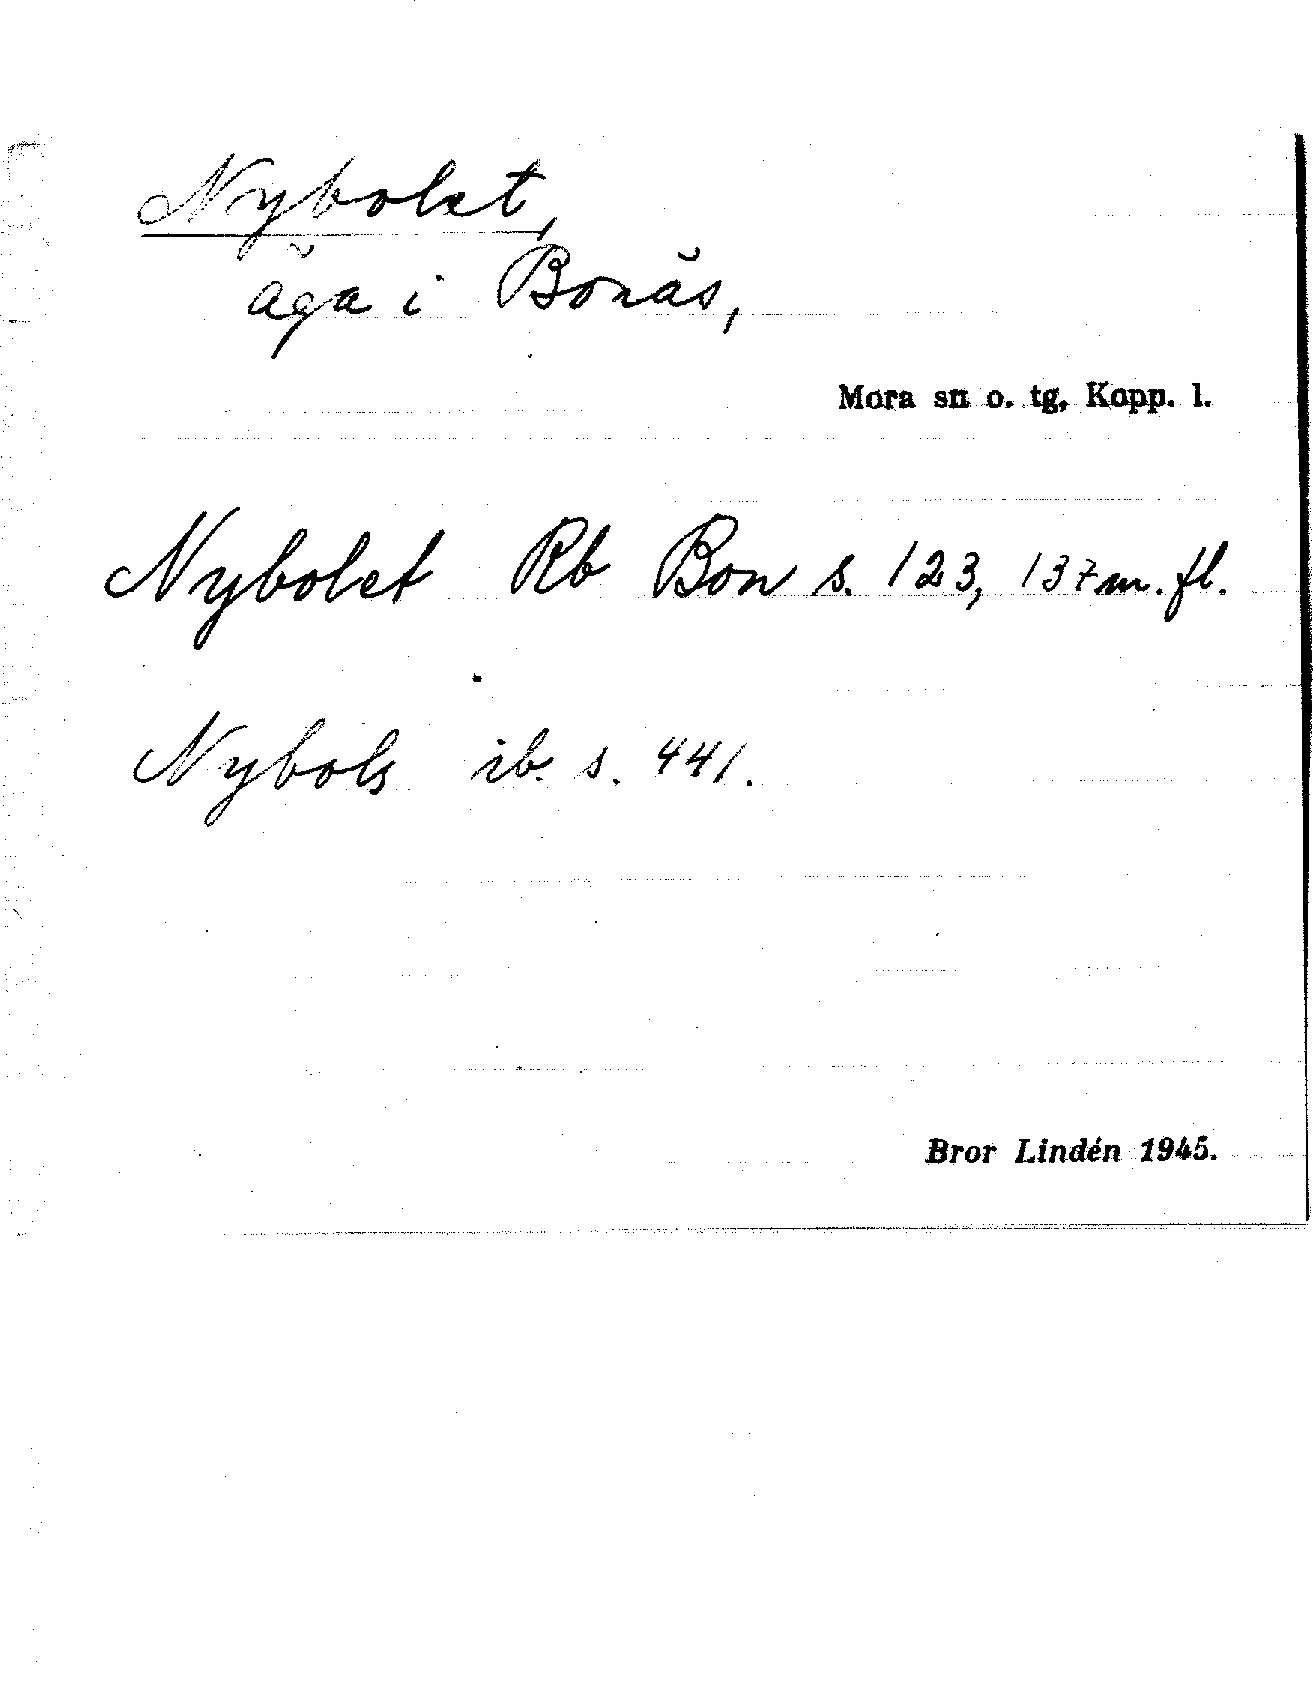 Nybolet,
äga i Bonäs,
Mora sn o. tg, Kopp. l.
Nybolet Rb Bon s. 123, 137 m. fl.
Nybols ib. s. 441.
Bror Lindén 1945.